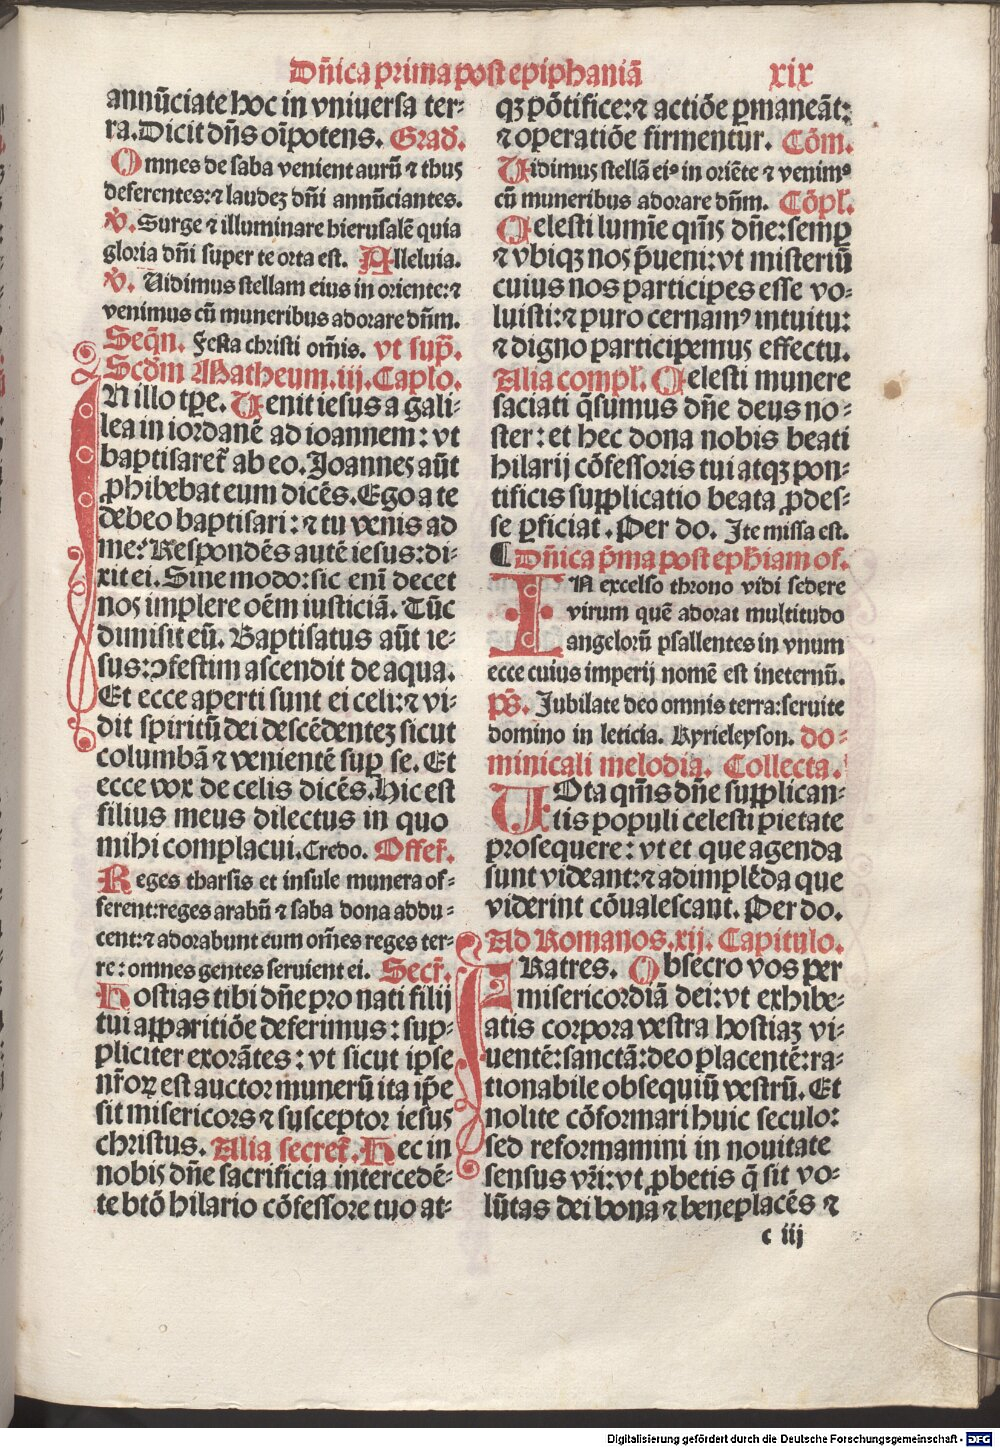 Dñica prima post epiphaniã xix
annũciate hoc in vniuersa ter⸗
ra. Dicit dñs oĩpotens. Grad̃.
Omnes de saba venient aurũ ⁊ thus
deferentes: ⁊ laudez dñi annũciantes.
℣. Surge ⁊ illuminare hierusalẽ quia
gloria dñi super te orta est. Alleluia.
℣. Uidimus stellam eius in oriente: ⁊
venimus cũ muneribus adorare dñm.
Seq̃n. Festa christi om̃is. vt sup̃.
Scd̃m Matheum. iij. Caplo.
IN illo tp̃e. Uenit iesus a gali⸗
lea in iordanẽ ad ioannem: vt
baptisaret̃ ab eo. Joannes aũt
ꝓhibebat eum dicẽs. Ego a te
debeo baptisari: ⁊ tu venis ad
me? Respondẽs autẽ iesus: di⸗
xit ei. Sine modo: sic enĩ decet
nos implere oẽm iusticiã. Tũc
dimisit eũ. Baptisatus aũt ie⸗
sus: ꝯfestim ascendit de aqua.
Et ecce aperti sunt ei celi: ⁊ vi⸗
dit spiritũ dei descẽdentez sicut
columbã ⁊ venientẽ suꝑ se. Et
ecce vox de celis dicẽs. Hic est
filius meus dilectus in quo
mihi complacui. Credo. Offer̃.
Reges tharsis et insule munera of⸗
ferent: reges arabũ ⁊ saba dona addu⸗
cent: ⁊ adorabunt eum om̃es reges ter⸗
re: omnes gentes seruient ei. Secr̃.
Hostias tibi dñe pro nati filij
tui apparitiõe deferimus: sup⸗
pliciter exorãtes: vt sicut ipse
nr̃oꝝ est auctor munerũ ita ip̃e
sit misericors ⁊ susceptor iesus
christus. Alia secret̃. Hec in
nobis dñe sacrificia intercedẽ⸗
te btõ hilario cõfessore tuo at⸗
qꝫ põtifice: ⁊ actiõe ꝑmaneãt:
⁊ operatiõe firmentur. Cõm.
Uidimus stellã eiꝰ in oriẽte ⁊ venimꝰ
cũ muneribus adorare dñm. Cõpl̃.
Celesti lumĩe qm̃s dñe: semꝑ
⁊ vbiqꝫ nos p̃ueni: vt misteriũ
cuius nos participes esse vo⸗
luisti: ⁊ puro cernamꝰ intuitu:
⁊ digno participemus effectu.
Alia compl̃. Celesti munere
saciati q̃sumus dñe deus no⸗
ster: et hec dona nobis beati
hilarij cõfessoris tui atqꝫ pon⸗
tificis supplicatio beata ꝓdes⸗
se ꝑficiat. Per do. Ite missa est.
¶ Dñica p̃ma post eph̃iam of.
IN excelso throno vidi sedere
virum quẽ adorat multitudo
angelorũ psallentes in vnum
ecce cuius imperij nomẽ est in eternũ.
p̃s. Jubilate deo omnis terra: seruite
domino in leticia. Kyrieleyson. do⸗
minicali melodia. Collecta.
UOta qm̃s dñe supplican⸗
tis populi celesti pietate
prosequere: vt et que agenda
sunt videant: ⁊ ad implẽda que
viderint cõualescant. Per do.
Ad Romanos. xij. Capitulo.
FRatres. Obsecro vos per
misericordiã dei: vt exhibe⸗
atis corpora vestra hostiaz vi⸗
uentẽ: sanctã: deo placentẽ: ra⸗
tionabile obsequiũ vestrũ. Et
nolite cõformari huic seculo:
sed reformamini in nouitate
sensus vr̃i: vt ꝓbetis q̃ sit vo⸗
lũtas dei bona ⁊ beneplacẽs ⁊
c iij
Digitalisierung gefördert durch die Deutsche Forschungsgemeinschaft - DFG